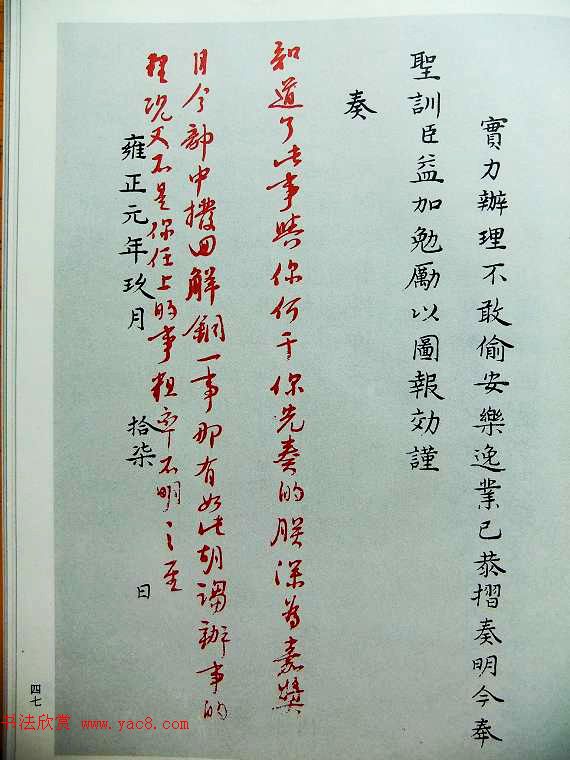 實力辦理不敢偷安樂逸業已恭摺奏明今奉
聖訓臣益加勉勵以圖報効謹
奏
知道了此事與你何干你先奏的朕深為嘉獎
目今部中撥回解銅一事那有如此胡謅辦事的
理況又不是你任上的事粗率不明之至
雍正元年玖月拾柒日
四七
书法欣赏 www.yac8.com